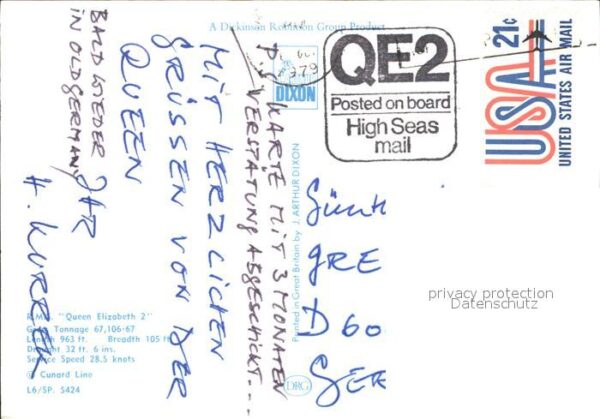 A Dickinson Robinson Group Product
QE2
Posted on board
High Seas
mail
21c
USA
UNITED STATES AIR MAIL
DIXON
MIT HERZLICHEN
GRÜSSEN VON DER
QUEEN
IHR
H. KURREK
BALD WIEDER
IN OLD GERMANY
P.S. KARTE MIT 3 MONATEN
VERSTÄTUNG ABGESCHICKT...
Printed in Great Britain by J. ARTHUR DIXON
GRE
D 60
GER
privacy protection
Datenschutz
R.M.S. "Queen Elizabeth 2"
Gross Tonnage 67,106·67
Length 963 ft. Breadth 105 ft
Draught 32 ft. 6 ins.
Service Speed 28.5 knots
© Cunard Line
L6/SP. 5424
DRG